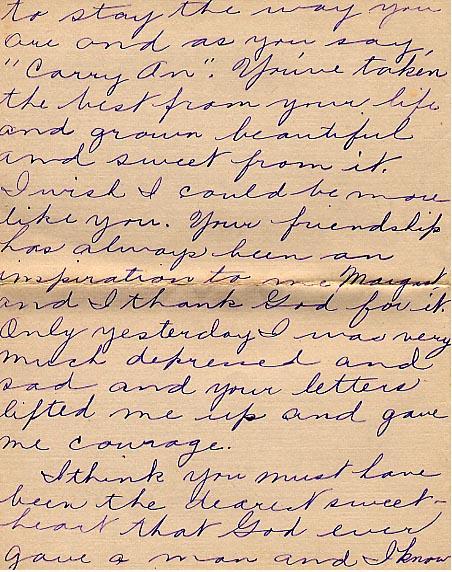 to stay the way you
are and as you say,
"Carry On". You've taken
the best from your life
and grown beautiful
and sweet from it.
I wish I could be more
like you. Your friendship
has always been an
inspiration to me Margaret
and I thank God for it.
Only yesterday I was very
much depressed and
sad and your letters
lifted me up and gave
me courage.
I think you must have
been the dearest sweet-
heart that God ever
gave a man and I know